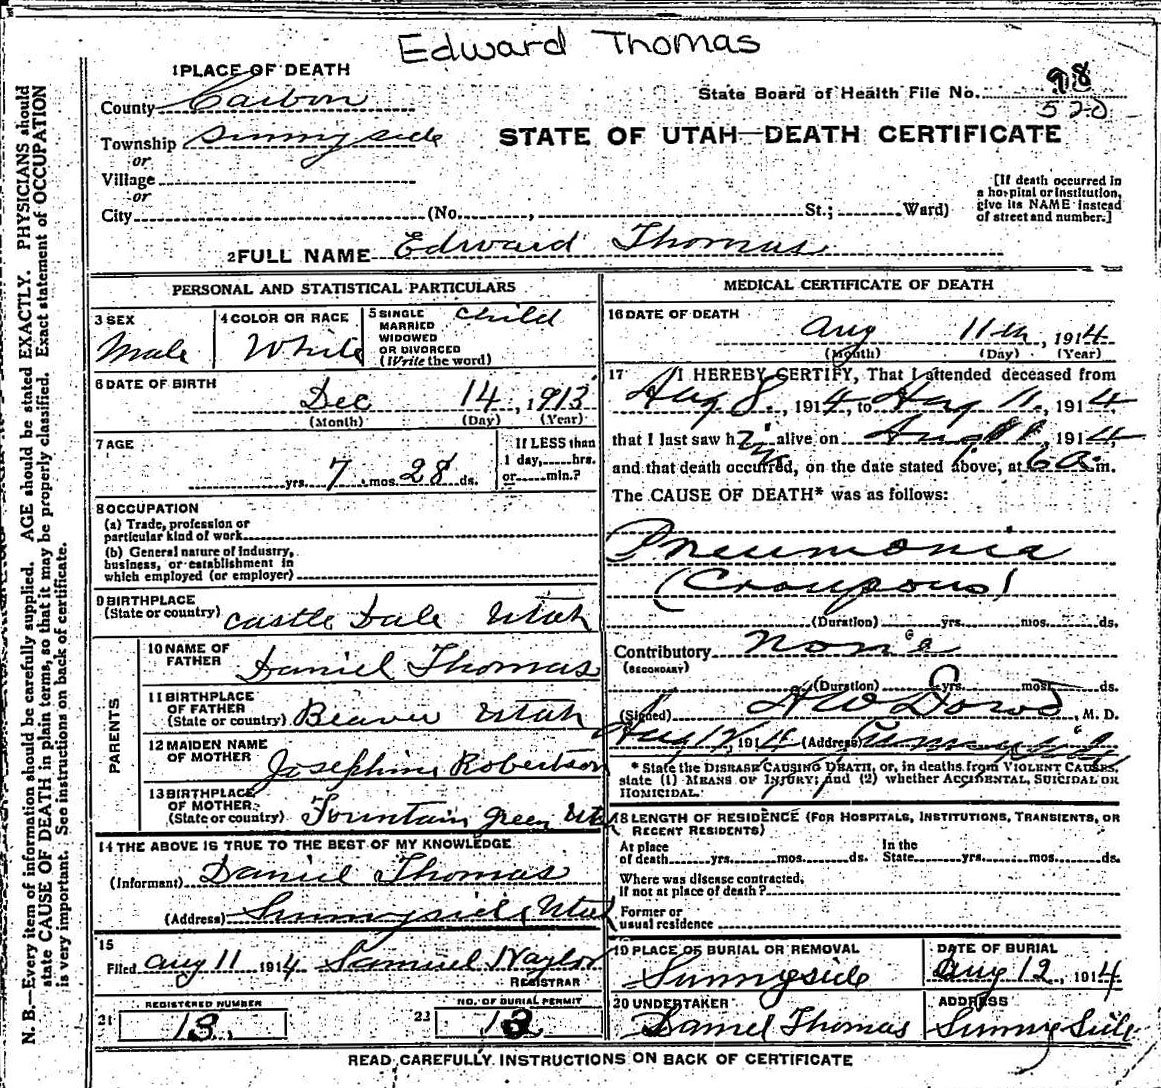 Edward Thomas
1 PLACE OF DEATH
County Carbon
State Board of Health File No. 98
520
Township Sunnyside
STATE OF UTAH—DEATH CERTIFICATE
or
Village
or
City (No. , St.; Ward)
[If death occurred in
a hospital or institution,
give its NAME instead
of street and number.]
2 FULL NAME Edward Thomas
PERSONAL AND STATISTICAL PARTICULARS
3 SEX
Male
4 COLOR OR RACE
White
5 SINGLE
MARRIED
WIDOWED
OR DIVORCED
(Write the word)
Child
6 DATE OF BIRTH
Dec 14, 1913
(Month) (Day) (Year)
7 AGE
yrs. 7 mos. 28 ds.
If LESS than
1 day, hrs.
or min.?
8 OCCUPATION
(a) Trade, profession or
particular kind of work
(b) General nature of industry,
business, or establishment in
which employed (or employer)
9 BIRTHPLACE
(State or country) Castle Dale Utah
PARENTS
10 NAME OF
FATHER Daniel Thomas
11 BIRTHPLACE
OF FATHER
(State or country) Beaver Utah
12 MAIDEN NAME
OF MOTHER Josephine Robertson
13 BIRTHPLACE
OF MOTHER
(State or country) Fountain Green Utah
14 THE ABOVE IS TRUE TO THE BEST OF MY KNOWLEDGE
(Informant) Daniel Thomas
(Address) Sunnyside, Utah
15
Filed Aug 11 1914 Samuel Naylor
REGISTRAR
REGISTERED NUMBER
21 13.
NO. OF BURIAL PERMIT
22 13
MEDICAL CERTIFICATE OF DEATH
16 DATE OF DEATH
Aug 11th, 1914
(Month) (Day) (Year)
17 I HEREBY CERTIFY, That I attended deceased from
Aug 8., 1914, to Aug 11., 1914
that I last saw h alive on Aug 11, 1914
and that death occurred, on the date stated above, at 6 a.m.
The CAUSE OF DEATH* was as follows:
Pneumonia
(Croupous)
(Duration) yrs. mos. ds.
Contributory None
(SECONDARY)
(Duration) yrs. mos. ds.
(Signed) A W Dowd, M. D.
Aug 12, 1914 (Address) Sunnyside
* State the DISEASE CAUSING DEATH, or, in deaths from VIOLENT CAUSES,
state (1) MEANS OF INJURY; and (2) whether ACCIDENTAL, SUICIDAL OR
HOMICIDAL.
18 LENGTH OF RESIDENCE (FOR HOSPITALS, INSTITUTIONS, TRANSIENTS, OR
RECENT RESIDENTS)
At place
of death yrs. mos. ds.
In the
State yrs. mos. ds.
Where was disease contracted,
if not at place of death?
Former or
usual residence
19 PLACE OF BURIAL OR REMOVAL
Sunnyside
DATE OF BURIAL
Aug 12, 1914
20 UNDERTAKER
Daniel Thomas
ADDRESS
Sunny Side
READ CAREFULLY INSTRUCTIONS ON BACK OF CERTIFICATE
N. B.—Every item of information should be carefully supplied. AGE should be stated EXACTLY. PHYSICIANS should
state CAUSE OF DEATH in plain terms, so that it may be properly classified. Exact statement of OCCUPATION
is very important. See instructions on back of certificate.